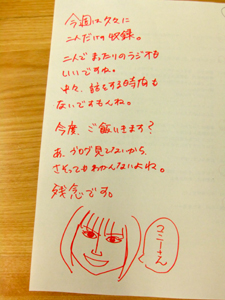 今週は久々に
二人だけの収録。
二人でまったりのラジオも
いいですね。
中々、話をする時間も
ないですもんね。
今度、ご飯いきます？
あ、ブログ見てないから、
さそってもわかんないよね。
残念です。
コニーさん